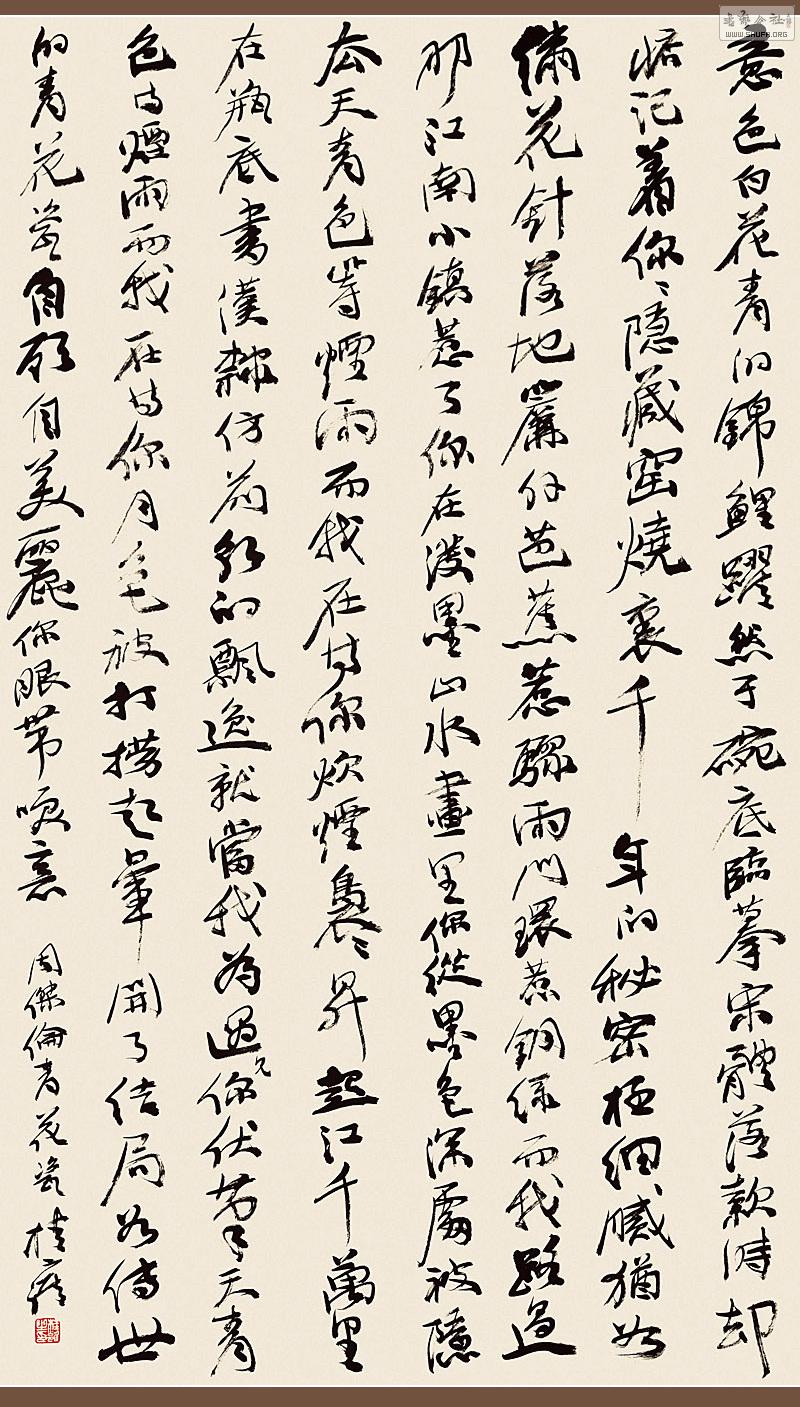 色白花青的錦鯉躍然于碗底臨摹宋體落款時却
惦记着你々隱藏窑燒裏千年的秘密極細膩猶如
繡花針落地簾外芭蕉惹驟雨门環惹銅绿而我路過
那江南小鎮惹了你在潑墨山水畫里你從墨色深處被隱
去天青色等煙雨而我在等你炊煙裊々昇起江千萬里
在瓶底書漢隸仿前朝的飄逸就當我為遇见你伏筆天青
色等煙雨而我在等你月色被打撈起暈開了结局如傳世
的青花瓷自顾自美麗你眼带咲意
周傑倫青花瓷 桂
WWW.SHUFA.ORG